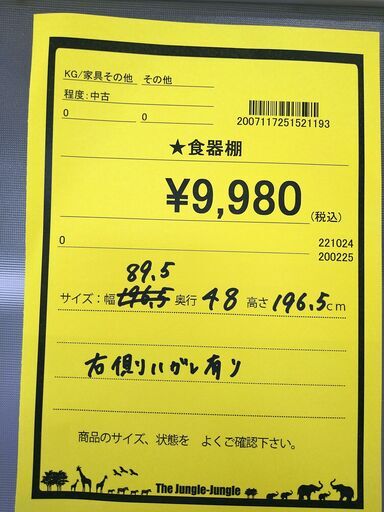 KG/家具その他 その他
程度:中古
0 0
2007117251521193
★食器棚
¥9,980(税込)
0 221024
200225
89.5
サイズ:幅 196.5 奥行 48 高さ 196.5cm
右側ハガレ有り
商品のサイズ、状態を よくご確認下さい。
The Jungle-Jungle